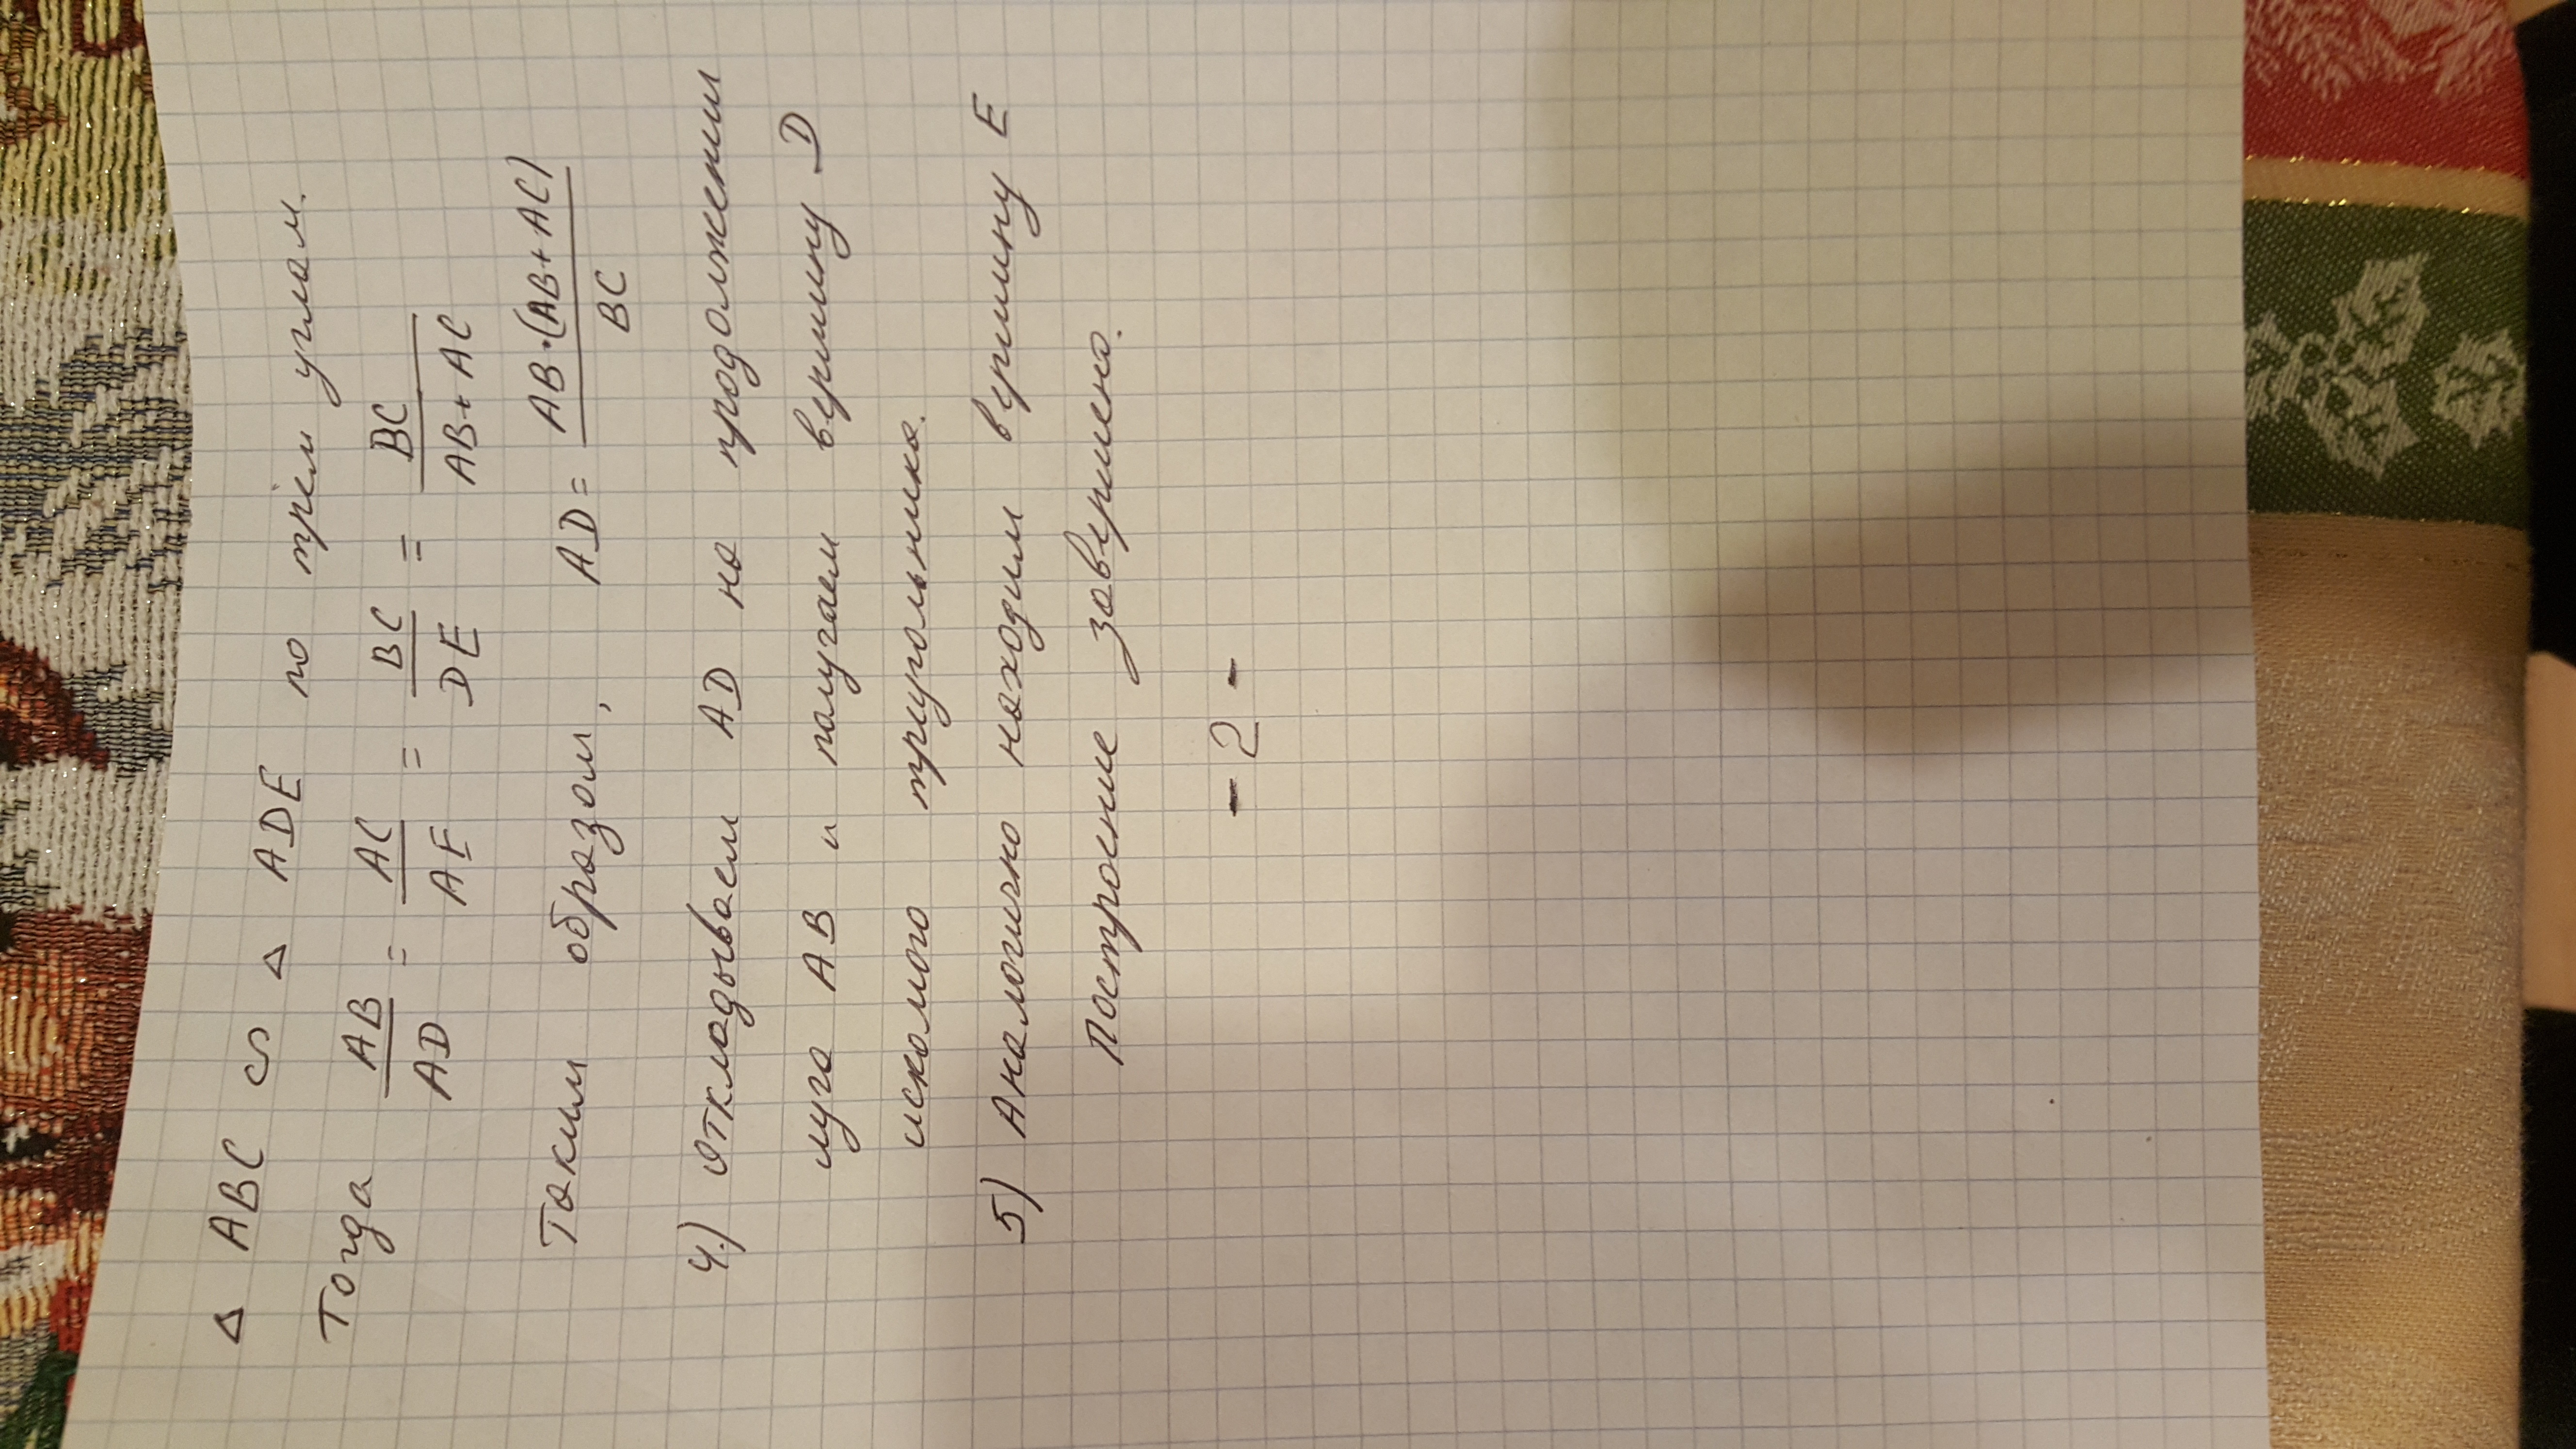 Δ ABC ∽ Δ ADE по трём углам.
Тогда AB/AD = AC/AE = BC/DE = BC/(AB+AC)
Таким образом, AD = AB·(AB+AC)/BC
4.) Откладываем AD на продолжении
луча AB и получаем вершину D
искомого треугольника.
5) Аналогично находим вершину E
Построение завершено.
- 2 -